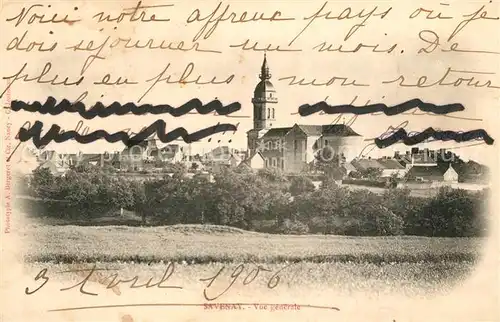 Voici notre affreux pays où je
dois séjourner un mois. De
plus en plus mon retour
3 Avril 1906
SAVENAY. - Vue générale
Phototypie A. Bergeret et Cie, Nancy